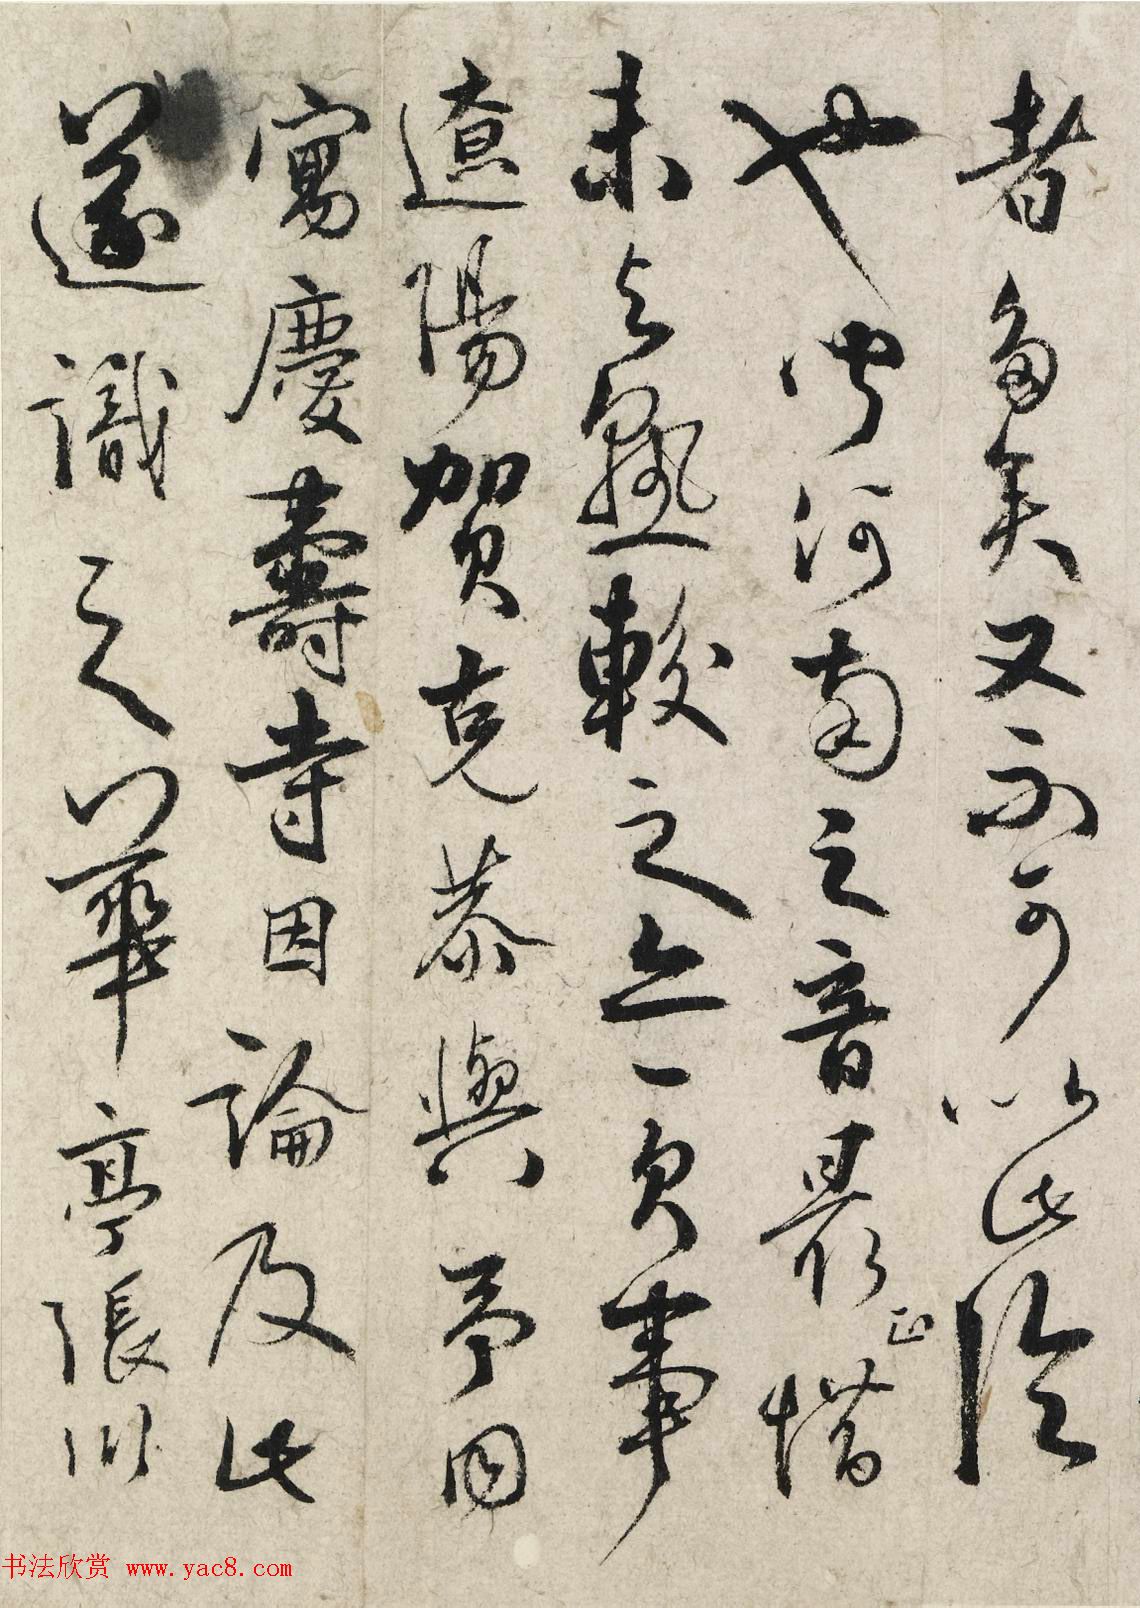 者多矣又不可以此限
也聞河南之音最正惜
未与熟較之亦一欠事
遼陽賀克恭與予同
寓慶壽寺因論及此
遂識之華亭張弼
书法欣赏 www.yac8.com